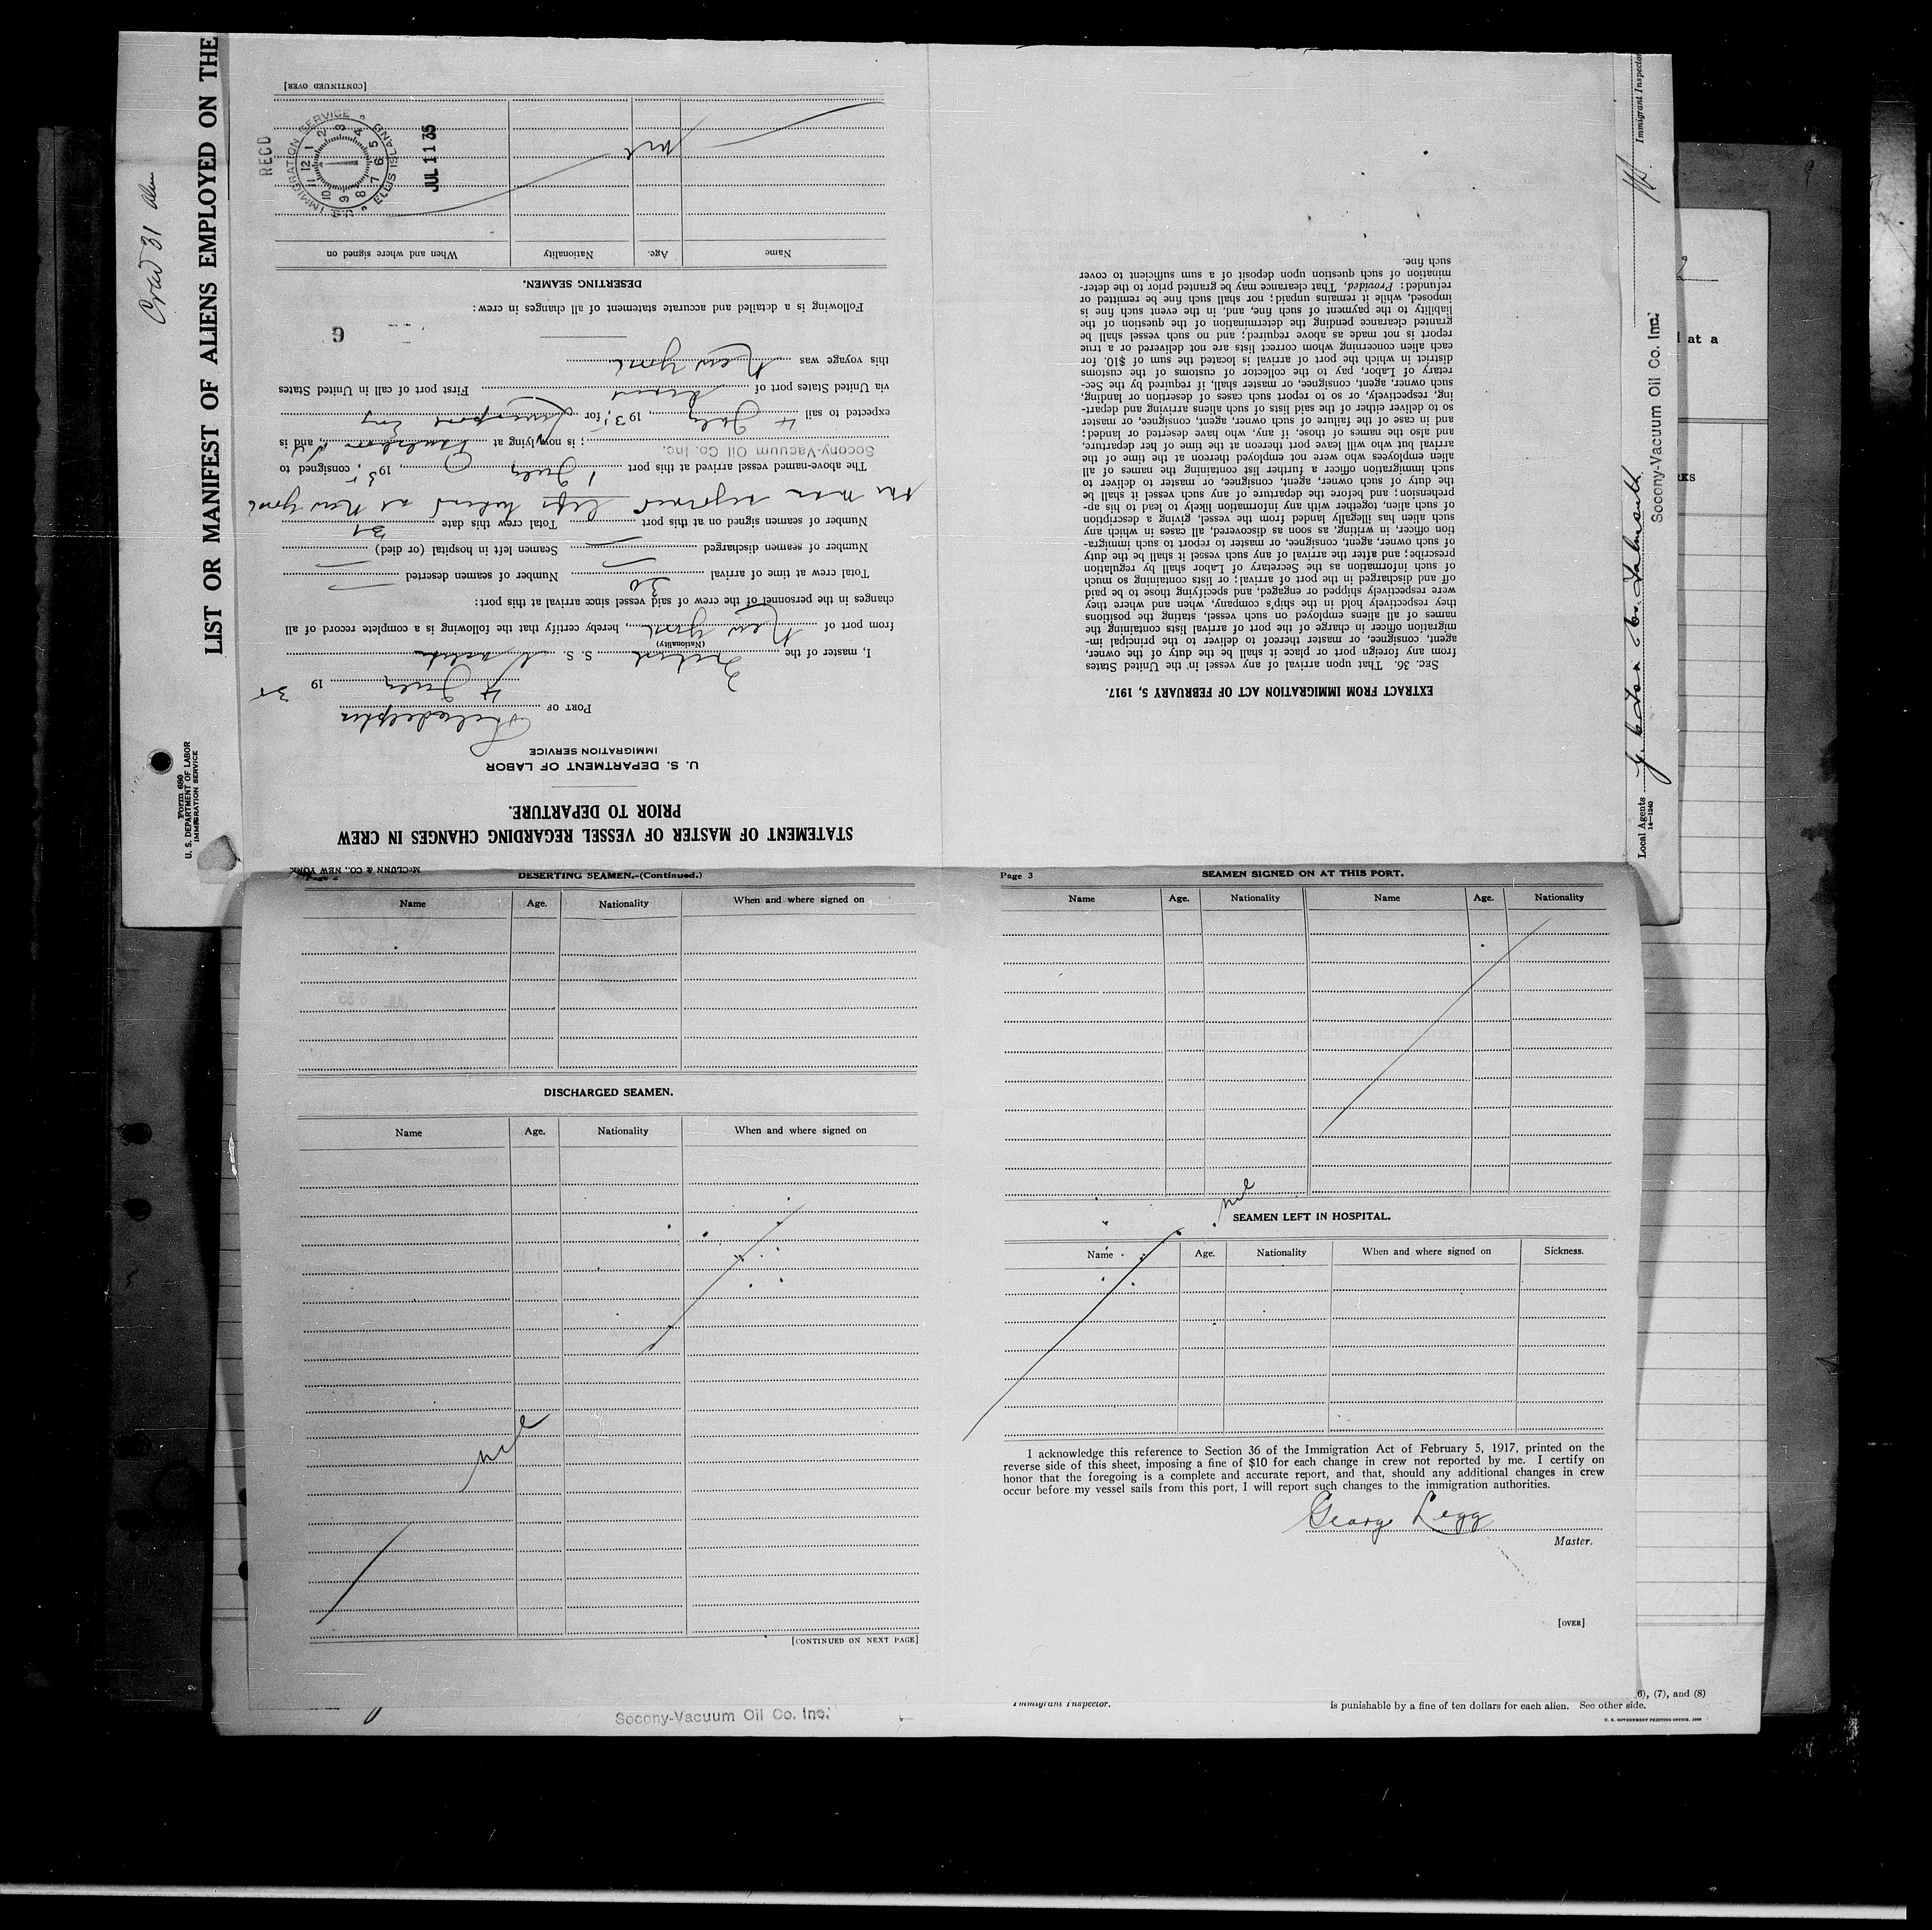 LIST OR MANIFEST OF ALIENS EMPLOYED ON THE
Crew 31
Form 680
U. S. DEPARTMENT OF LABOR
IMMIGRATION SERVICE
STATEMENT OF MASTER OF VESSEL REGARDING CHANGES IN CREW
PRIOR TO DEPARTURE.
U. S. DEPARTMENT OF LABOR
IMMIGRATION SERVICE
PORT OF Philadelphia
4 July 19 35
I, master of the S. S.
(Nationality)
from port of New York, hereby certify that the following is a complete record of all
changes in the personnel of the crew of said vessel since arrival at this port:
Total crew at time of arrival 30 Number of seamen deserted
Number of seamen discharged Seamen left in hospital (or died)
Number of seamen signed on at this port Total crew this date 31
One man rejoined left behind at New York
The above-named vessel arrived at this port 1 July, 1935, consigned to
Socony-Vacuum Oil Co. Inc.
; is now lying at, and is
expected to sail 4 July, 1935, for Liverpool Eng
via United States port of direct First port of call in United States
this voyage was New York
9
Following is a detailed and accurate statement of all changes in crew:
DESERTING SEAMEN.
Name Age. Nationality When and where signed on
nil
RECD
U.S. IMMIGRATION SERVICE ELLIS ISLAND
12 1 2 3 4 5 6 7 8 9 10 11
JUL 11 35
[CONTINUED OVER]
EXTRACT FROM IMMIGRATION ACT OF FEBRUARY 5, 1917.
SEC. 36. That upon arrival of any vessel in the United States
from any foreign port or place it shall be the duty of the owner,
agent, consignee, or master thereof to deliver to the principal im-
migration officer in charge of the port of arrival lists containing the
names of all aliens employed on such vessel, stating the positions
they respectively hold in the ship's company, when and where they
were respectively shipped or engaged, and specifying those to be paid
off and discharged in the port of arrival; or lists containing so much
of such information as the Secretary of Labor shall by regulation
prescribe; and after the arrival of any such vessel it shall be the duty
of such owner, agent, consignee, or master to report to such immigra-
tion officer, in writing, as soon as discovered, all cases in which any
such alien has illegally landed from the vessel, giving a description
of such alien, together with any information likely to lead to his ap-
prehension; and before the departure of any such vessel it shall be
the duty of such owner, agent, consignee, or master to deliver to
such immigration officer a further list containing the names of all
alien employees who were not employed thereon at the time of the
arrival but who will leave port thereon at the time of her departure,
and also the names of those, if any, who have deserted or landed;
and in case of the failure of such owner, agent, consignee, or master
so to deliver either of the said lists of such aliens arriving and depart-
ing, respectively, or so to report such cases of desertion or landing,
such owner, agent, consignee, or master shall, if required by the Sec-
retary of Labor, pay to the collector of customs of the customs
district in which the port of arrival is located the sum of $10, for
each alien concerning whom correct lists are not delivered or a true
report is not made as above required; and no such vessel shall be
granted clearance pending the determination of the question of the
liability to the payment of such fine, and, in the event such fine is
imposed, while it remains unpaid; nor shall such fine be remitted or
refunded: Provided, That clearance may be granted prior to the deter-
mination of such question upon deposit of a sum sufficient to cover
such fine.
Immigrant Inspector
Socony-Vacuum Oil Co. Inc.
Local Agents
14—1240
at a
McCLUNN & CO., NEW YORK
DESERTING SEAMEN.-(Continued.)
Name Age. Nationality When and where signed on
DISCHARGED SEAMEN.
Name Age. Nationality When and where signed on
nil
[CONTINUED ON NEXT PAGE]
Page 3
SEAMEN SIGNED ON AT THIS PORT.
Name Age. Nationality Name Age. Nationality
nil
SEAMEN LEFT IN HOSPITAL.
Name Age. Nationality When and where signed on Sickness.
I acknowledge this reference to Section 36 of the Immigration Act of February 5, 1917, printed on the
reverse side of this sheet, imposing a fine of $10 for each change in crew not reported by me. I certify on
honor that the foregoing is a complete and accurate report, and that, should any additional changes in crew
occur before my vessel sails from this port, I will report such changes to the immigration authorities.
George Legg
Master.
[OVER]
Socony-Vacuum Oil Co. Inc.
Immigrant Inspector.
6), (7), and (8)
is punishable by a fine of ten dollars for each alien. See other side.
U. S. GOVERNMENT PRINTING OFFICE